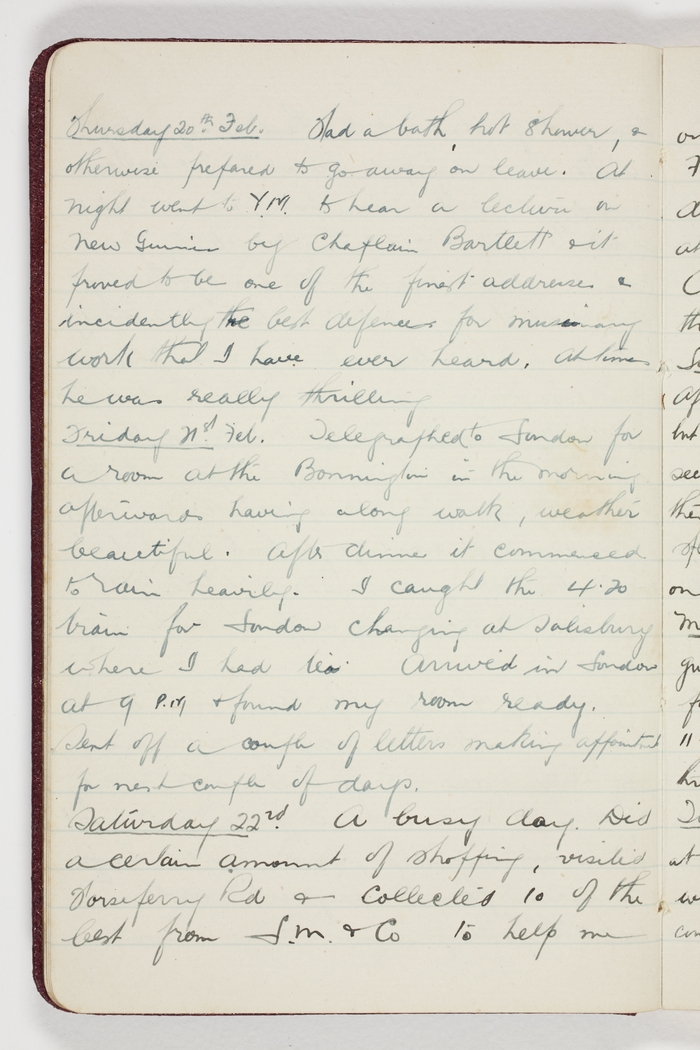 Thursday 20th Feb. Had a bath, hot shower, &
otherwise prepared to go away on leave. At
night went to Y.M. to hear a lecture on
New Guinea by Chaplain Bartlett & it
proved to be one of the finest addresses &
incidently the best defences for missionary
work that I have ever heard. At times
he was really thrilling
Friday 21st Feb. Telegraphed to London for
a room at the Bonnington in the morning
afterwards having along walk, weather
beautiful. After dinner it commenced
to rain heavily. I caught the 4.20
train for London changing at Salisbury
where I had tea. Arrived in London
at 9 P.M & found my room ready.
Sent off a couple of letters making
for next couple of days.
Saturday 22nd. A busy day. Did
a certain amount of shopping, visited
Horseferry Rd & collected 10 of the
best from S.M. & Co to help me